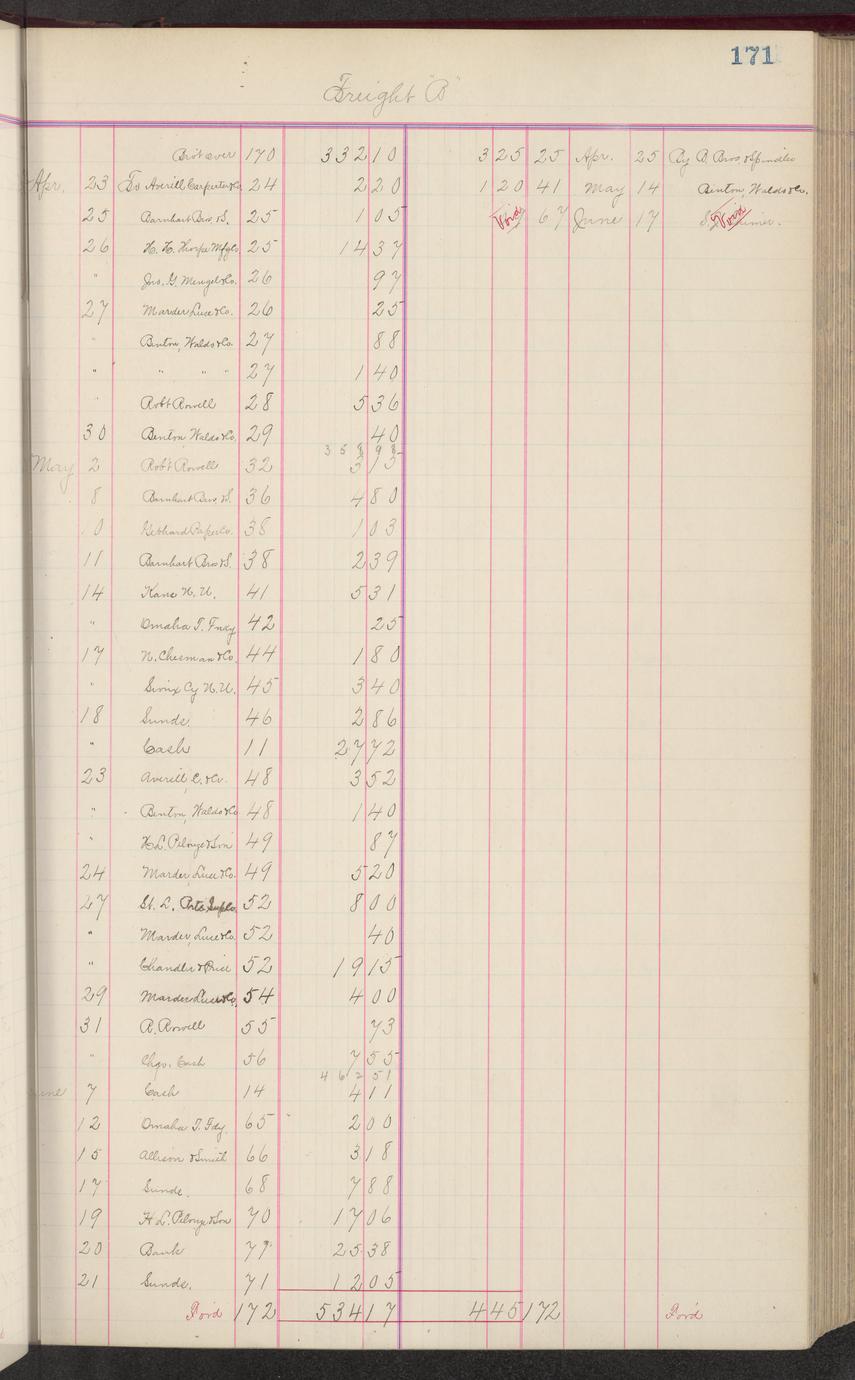 171
Freight "B"
Bro't over 170 332 10 3 25 25 Apr. 25 By B. Bros. & Spindler
Apr. 23 To Averill Carpenter & Co. 24 2 20 1 20 41 May 14 Benton, Waldo & Co.
25 Barnhart Bros. & S. 25 1 05 Void 67 June 17 Void
26 H. H. Thorpe Mfg Co. 25 14 37
" Jno. G. Mengel & Co. 26 97
27 Marder Luse & Co. 26 25
" Benton, Waldo & Co. 27 88
" " " " 27 1 40
" Robt Rowell 28 5 36
30 Benton Waldo & Co. 29 40
358 98
May 2 Rob't Rowell 32 3 15
8 Barnhart Bros. & S. 36 4 80
10 Gebhard Paper Co. 38 1 03
11 Barnhart Bros & S. 38 2 39
14 Kans N. U. 41 5 31
" Omaha T. Fndy 42 25
17 N. Chesman & Co 44 1 80
" Sioux Cy N. U. 45 3 40
18 Sunds. 46 2 86
" Cash 11 27 72
23 Averill, C. & Co. 48 3 52
" Benton, Waldo & Co 48 1 40
" H. L. Pelouze & Son 49 87
24 Marder, Luse & Co. 49 5 20
27 St. L. Prtrs Sup Co. 52 8 00
" Marder, Luse & Co. 52 40
" Chandler & Price 52 19 15
29 Marder Luse & Co. 54 4 00
31 R. Rowell 55 73
" Chgo. Cash 56 7 55
462 51
June 7 Cash 14 4 11
12 Omaha T. Fdy. 65 2 00
15 Allison & Smith 66 3 18
17 Sunds. 68 7 88
19 H. L. Pelouze & Son 70 17 06
20 Bank 77 25 38
21 Sunds. 71 12 05
For'd 172 534 17 4 45 172 For'd